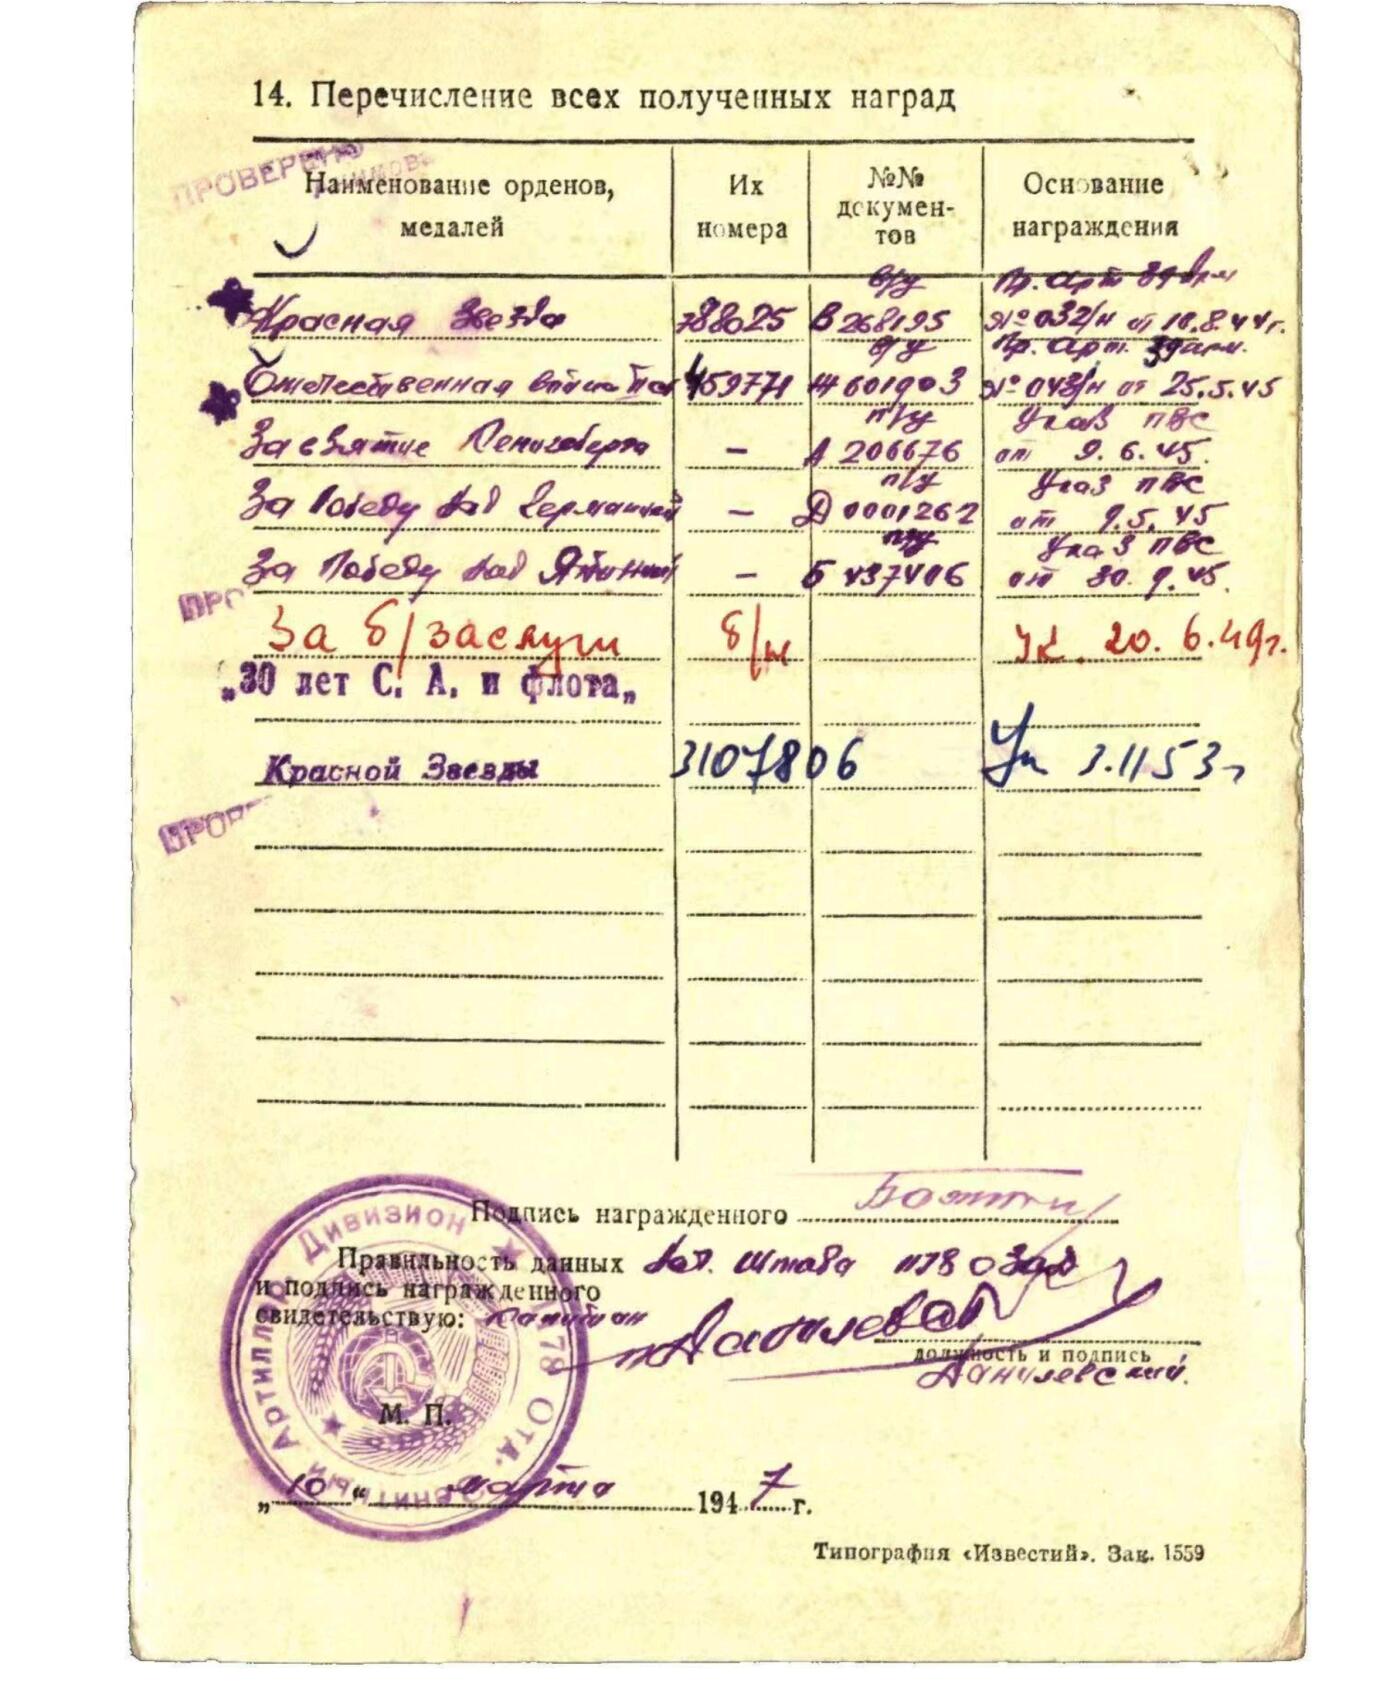 14. Перечисление всех полученных наград
ПРОВЕРЕНО
Наименование орденов, медалей
Их номера
№№ докумен-тов
Основание награждения
в/у Пр. Арт 39 арм
Красная Звезда 788025 В 268195 № 032/н от 10.8.44г.
в/у Пр. Арт. 39 арм.
Отечественная война 459771 Ж 601903 № 043/н от 25.5.45
п/у Указ ПВС
За взятие Кенигсберга – А 206676 от 9.6.45.
п/у Указ ПВС
За Победу над Германией – Д 0001262 от 9.5.45
п/у Указ ПВС
За Победу над Японией – Б 437406 от 30.9.45.
ПРО
За б/заслуги б/н Ук. 20.6.49г.
„30 лет С. А. и флота„
Красной Звезды 3107806 Ук 3.11 53г
ПРОВЕ
Подпись награжденного
Правильность данных Нач. Штаба 1178 ОЗАД
и подпись награжденного
свидетельствую: Капитан
должность и подпись
Данилевский.
Зенитный Артиллер Дивизион ★ 1178 Отд.
М. П.
„10“ марта 1947 г.
Типография «Известий». Зак. 1559